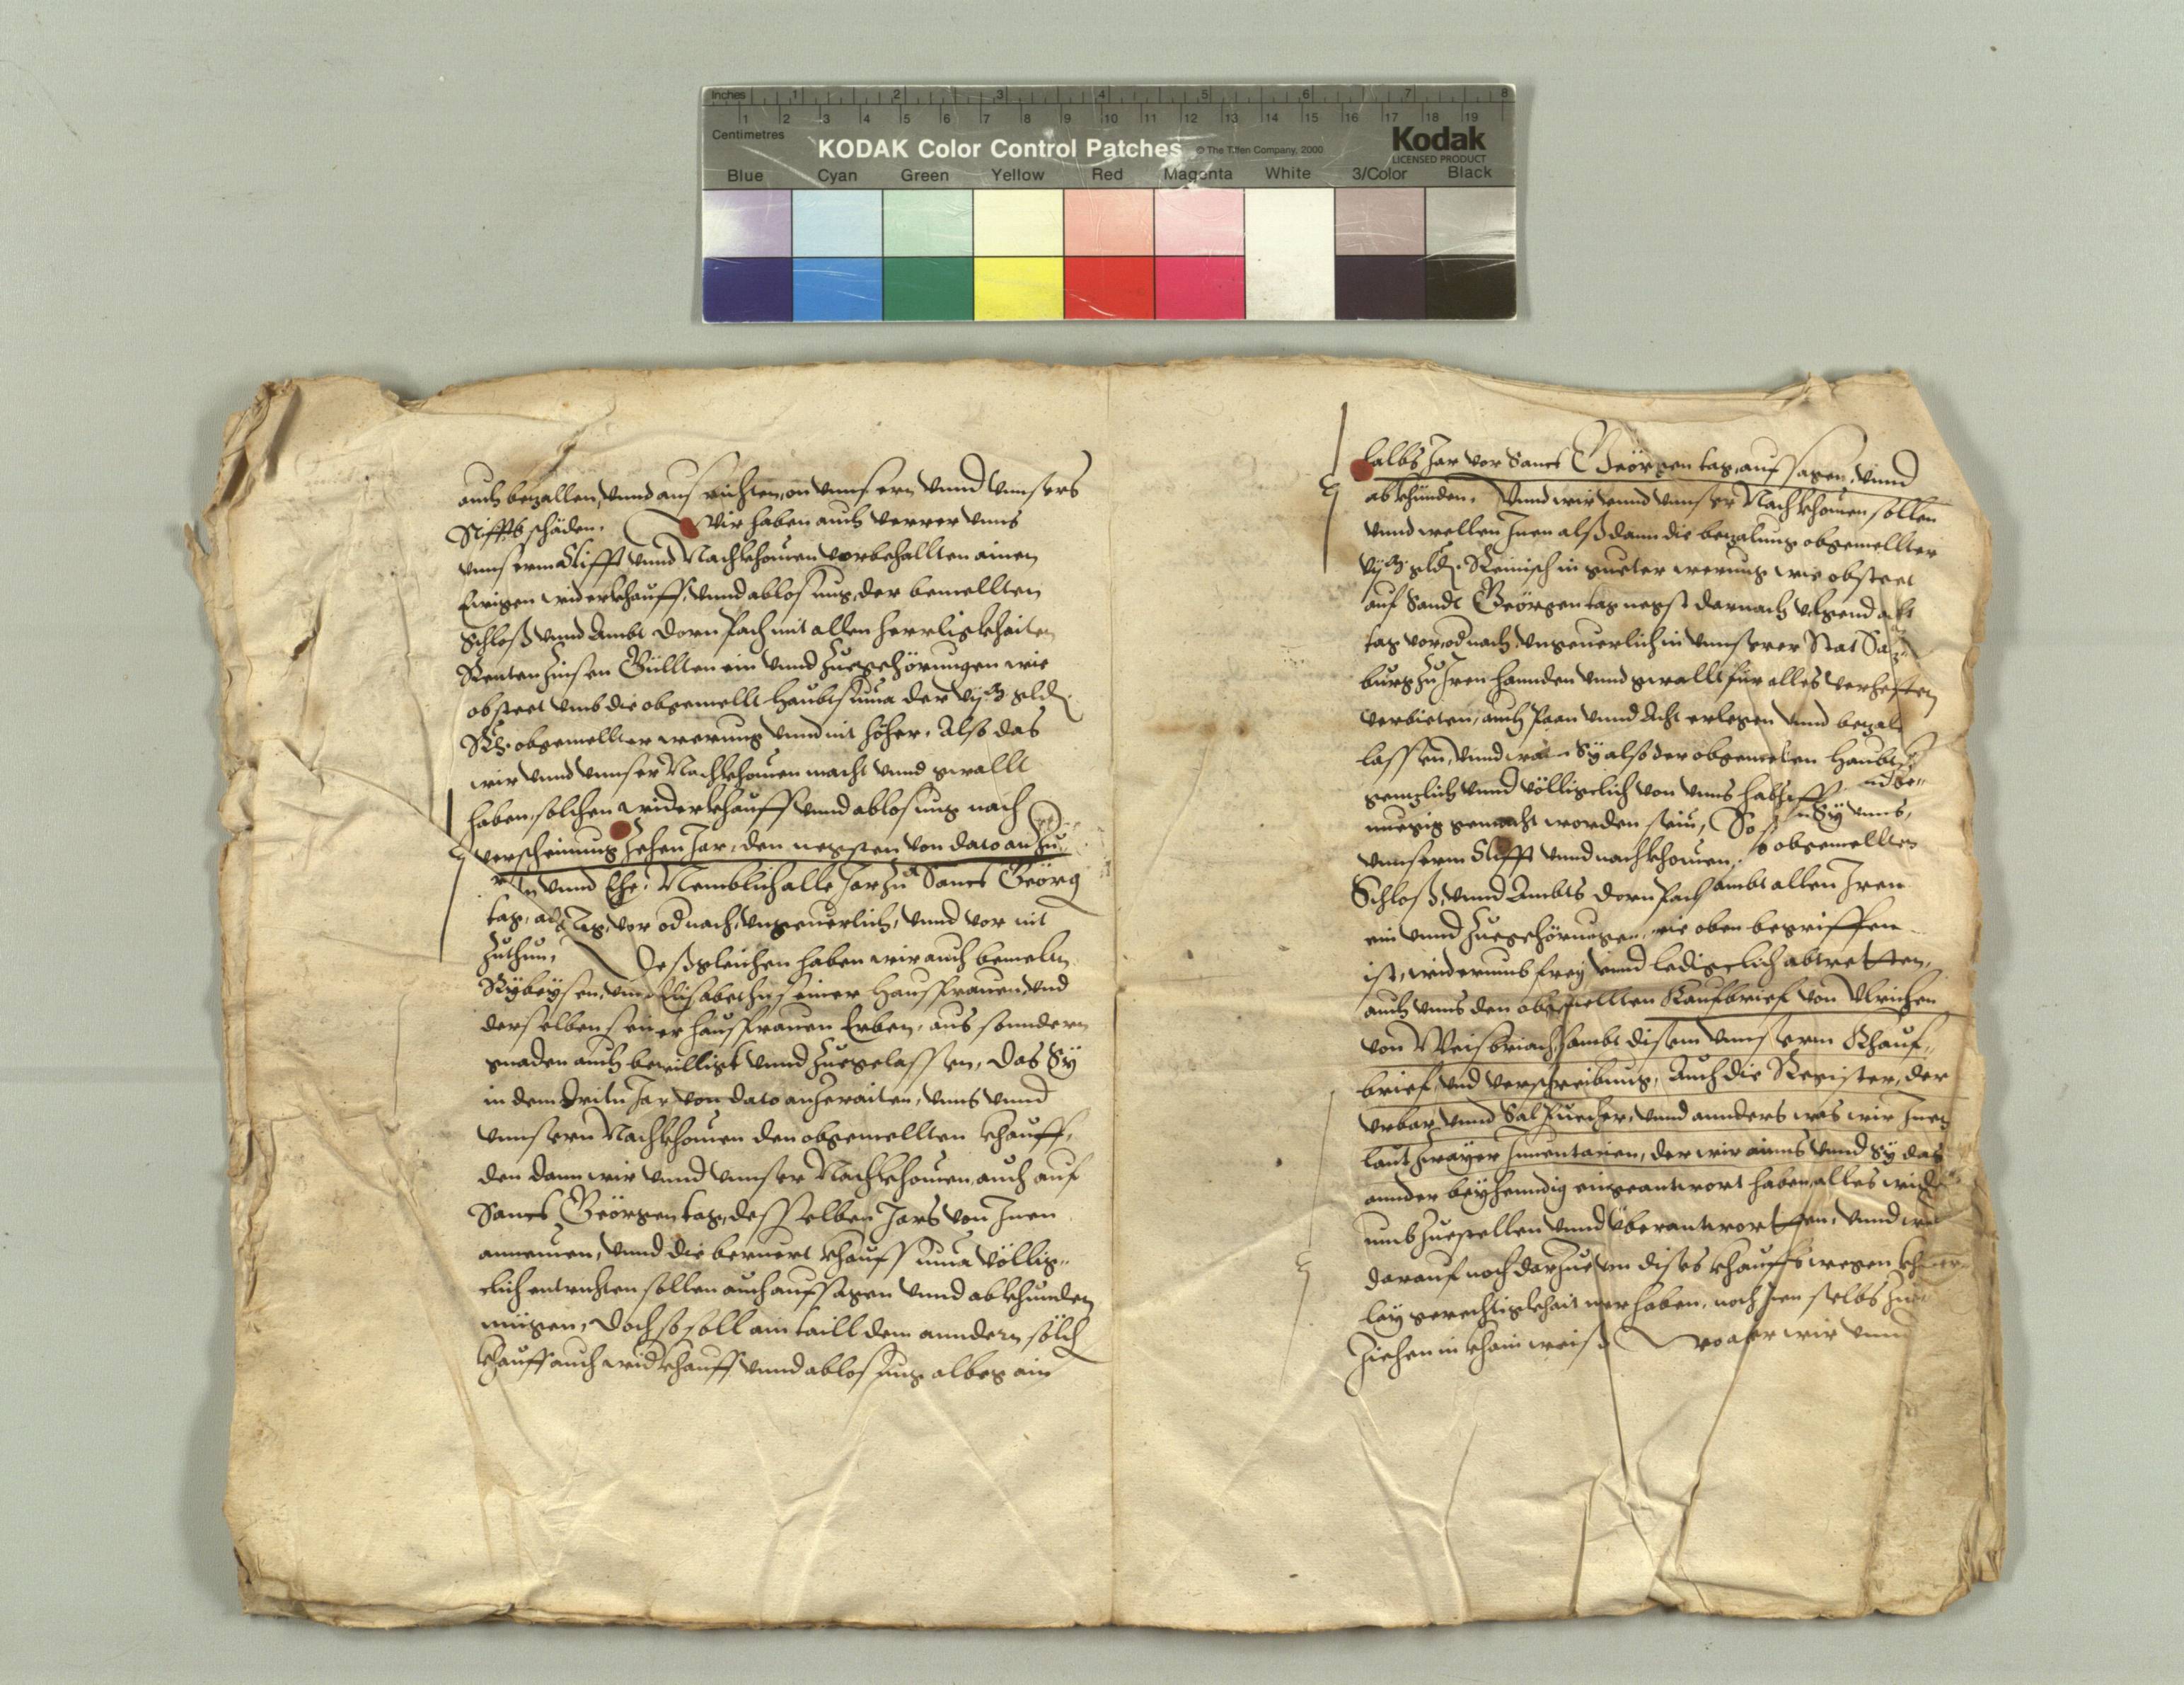 Inches 1 2 3 4 5 6 7 8
Centimetres 1 2 3 4 5 6 7 8 9 10 11 12 13 14 15 16 17 18 19
KODAK Color Control Patches © The Tiffen Company, 2000 Kodak
LICENSED PRODUCT
Blue Cyan Green Yellow Red Magenta White 3/Color Black
auch bezallen, vnnd ausrichten, on vnnsern vnnd vnnsers
Stiffts schäden. Wir haben auch verrer vnns
vnnserm Stifft vnnd Nachkhomen vorbehallten ainen
Ewigen widerkhauff, vnnd ablosung, der bemellten
Schloß vnnd Ambt Dornpach mit allen herrligkhaiten
Renten Zinsen Güllten ein vnnd Zuegehörungen wie
obsteet vmb die obgemellt Haubtsuma der
obgemellter werung vnnd nit höher. Also das
wir vnnd vnnser Nachkhomen macht vnnd gwallt
haben, solchen widerkhauff vnnd ablosung nach
verscheinung Zehen Jar, den negsten von dato an Zu
vnnd Ehe. Nemblich alle Jar Zu Sanct Georg
tag, vor od nach, vngeuerlich, vnnd vor nit
Zuthun, Deßgleichen haben wir auch bemeltn
vnnd Elisabethn seiner Hausfrauen vnd
derselben seiner hausfrauen Erben, aus sonndern
gnaden auch bewilligt vnnd Zuegelassen, das Sy
in dem Jar von dato an vnns vnnd
vnnsern Nachkhomen den obgemellten khauff,
den dann wir vnnd vnnser Nachkhomen auch auf
Sanct Geörgen tag, desselben Jars von Inen
annemen, vnnd die beruert khaufsuma völlig„
clich entrichten sollen auch aufsagen vnnd abkhunden
mügen, Doch so soll ain taill dem anndern sölch
khauff auch widkhauff vnnd ablosung albeg ain
halbs Jar vor Sanct Geörgen tag, aufsagen, vnnd
abkhünden. Vnnd wir vnnd vnnser Nachkhomen sollen
vnnd wellen Inen alßdann die bezalung obgemellter
Reinisch in gueter werung wie obsteet
auf Sandt Geörgen tag negst darnach volgend
tag vor od nach, vngeuerlich in vnnserer Stat Salz„
burg Zu Iren hannden vnnd gwallt für alles verhefften
verbieten, auch vnnd Acht erlegen vnnd bezaln
lassen, vnnd wann Sy also der obgemelten Haubts
genzlich vnnd völligclich von vnns
nuegig gemacht worden sein, So Sy vnns,
vnnserm Stifft vnnd nachkhomen, obgemellten
Schloß, vnnd Ambts Dornpach sambt allen Iren
ein vnnd Zuegehörungen, wie oben begriffen
ist, widerumb frey vnnd ledigclich abtretten,
auch vnns den obgemellten Kaufbrief von Vlrichen
von Weisbriach, sambt disem vnnserm Khauf„
brief, vnd verschreibung, Auch die Register, der
Vrbar vnnd Salpuecher, vnnd annders was wir Inen
laut Zwayer Inuentarien, der wir ains vnnd sy das
annder beyhenndig eingeantwort haben, alles wider„
umb Zuestellen vnnd überantwortten, vnnd
darauf noch darzue von dises khauffs wegen
lay gerechtigkhait mer haben, noch Inen selbs Zue
Ziehen in khain weiß Wo aber wir vnnd